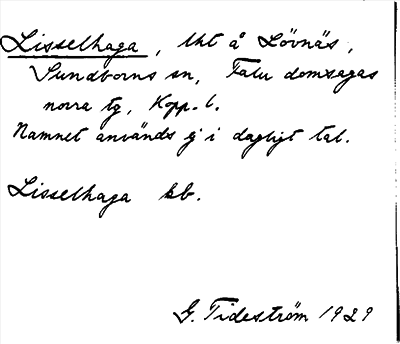 Lisselhaga, lht å Lövnäs,
Sundborns sn, Falu domsagas
norra tg, Kopp. l.
Namnet används ej i dagligt tal.
Lisselhaga bb.
G. Tideström 1929